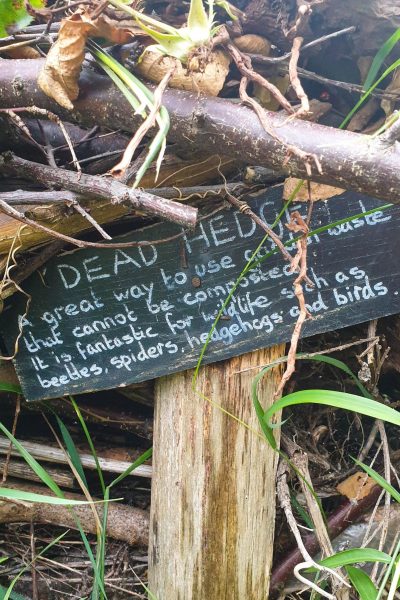 DEAD HEDGE
A great way to use garden waste
that cannot be composted.
It is fantastic for wildlife such as
beetles, spiders, hedgehogs and birds.